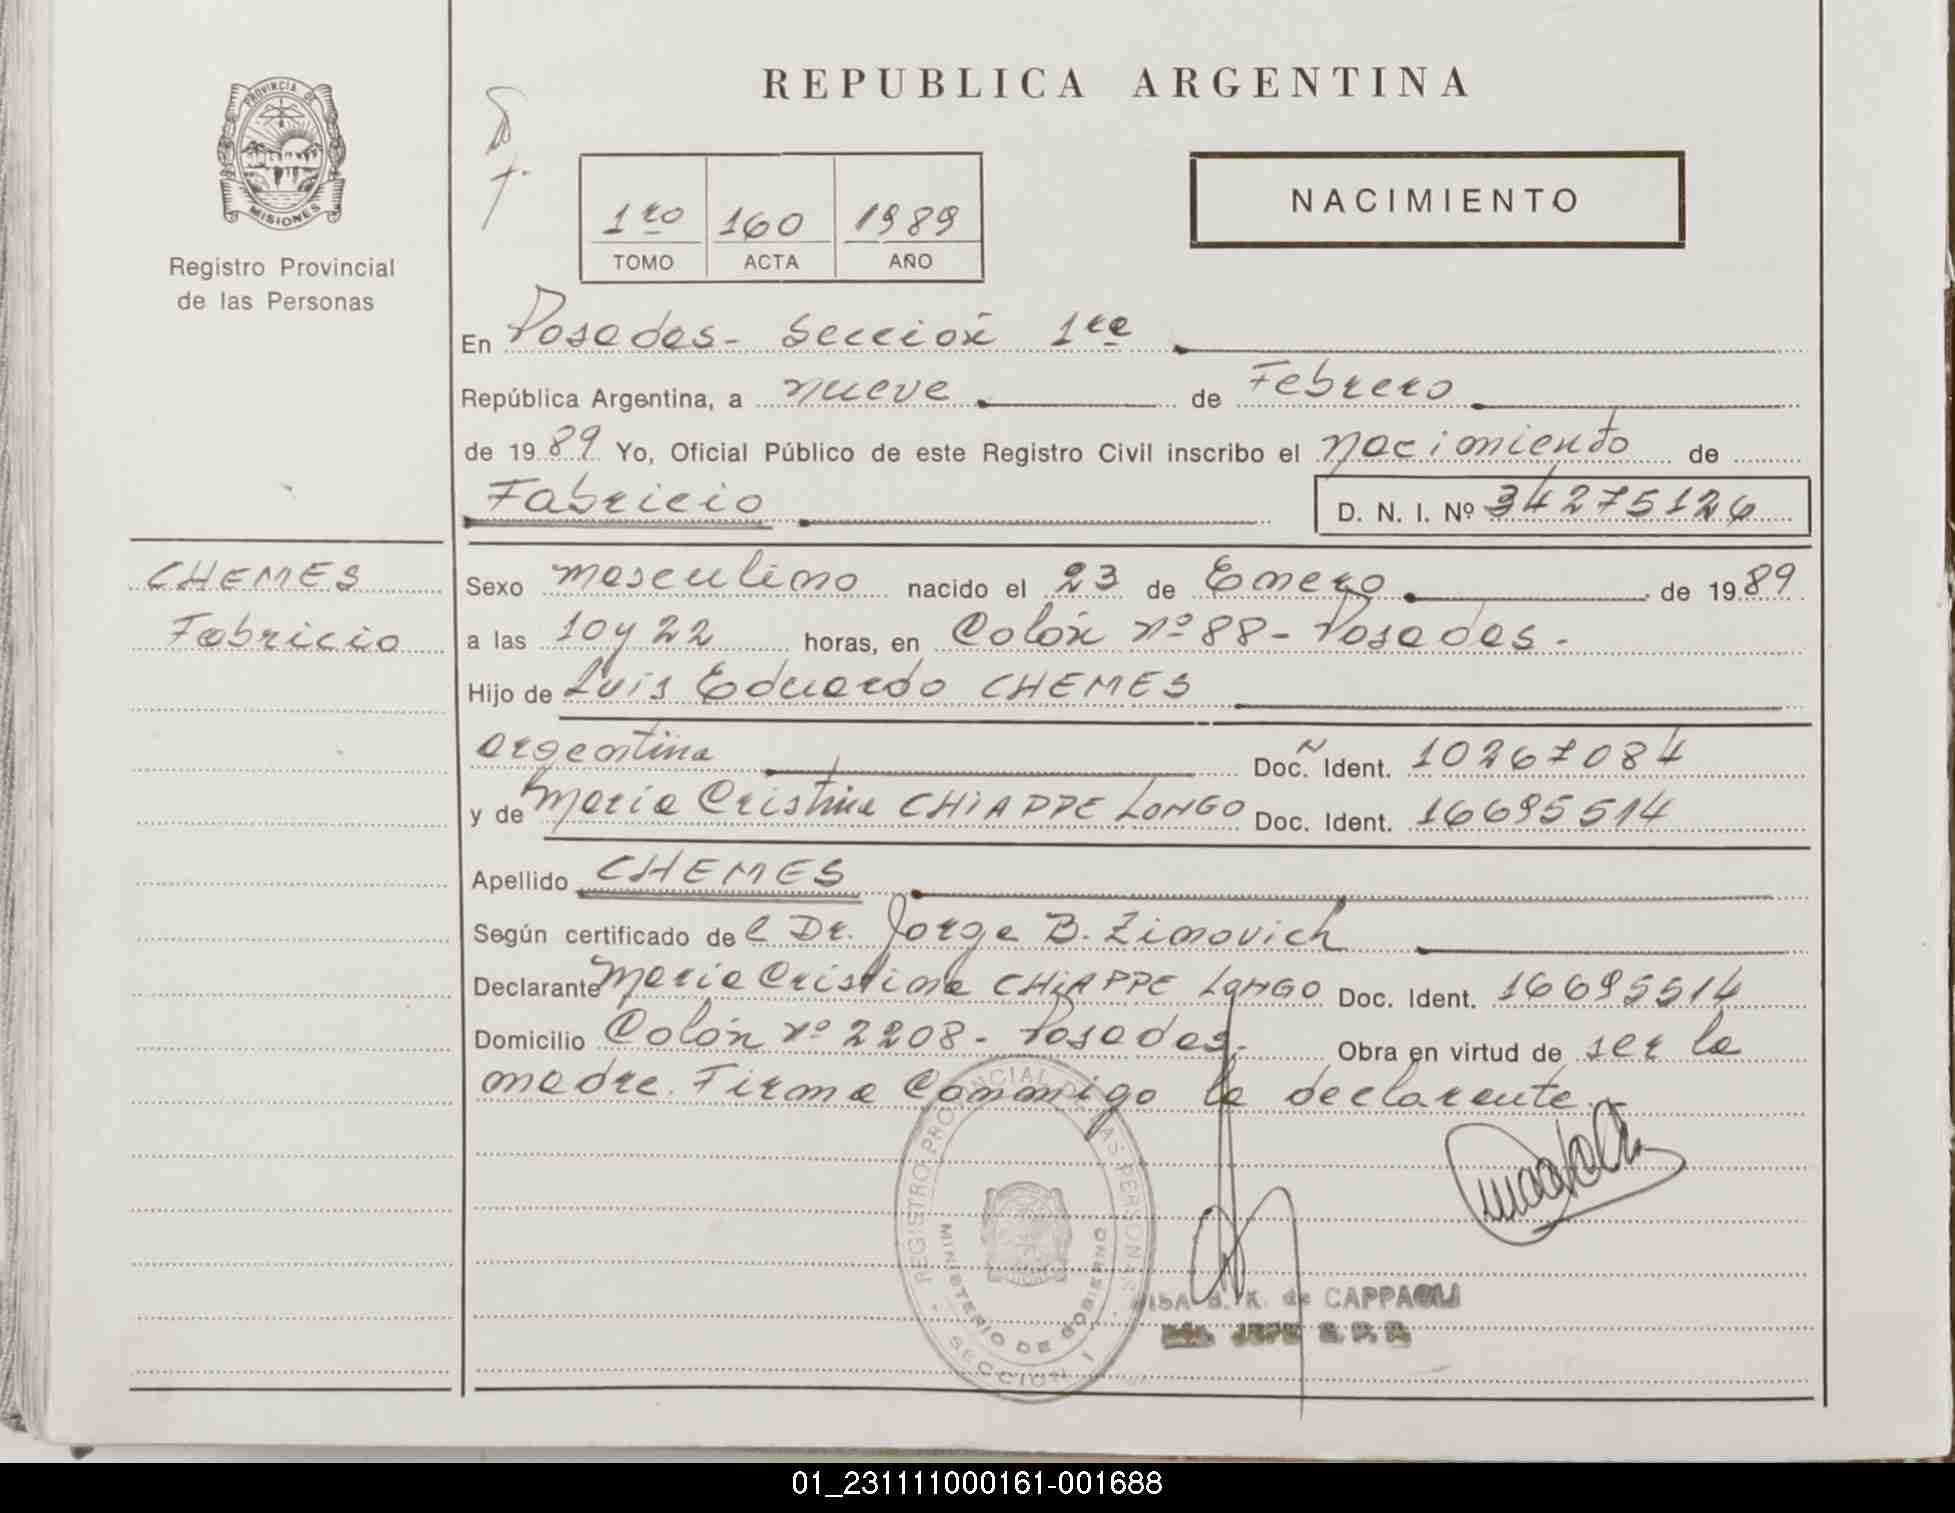 REPUBLICA ARGENTINA
PROVINCIA DE
MISIONES
Registro Provincial
de las Personas
1ro 160 1989
TOMO ACTA AÑO
NACIMIENTO
En Posadas - Sección 1ra
República Argentina, a nueve de Febrero
de 1989 Yo, Oficial Público de este Registro Civil inscribo el nacimiento de
Fabricio D. N. I. Nº 34275126
CHEMES
Fabricio
Sexo masculino nacido el 23 de Enero de 1989
a las 10 y 22 horas, en Colón nº 88 - Posadas.
Hijo de Luis Eduardo CHEMES
argentina Doc. Ident. 10267084
y de María Cristina CHIAPPE LONGO Doc. Ident. 16695514
Apellido CHEMES
Según certificado del Dr. Jorge B. Zimovich
Declarante María Cristina CHIAPPE LONGO Doc. Ident. 16695514
Domicilio Colón nº 2208 - Posadas. Obra en virtud de ser la
madre. Firma Conmigo la declarante.-
REGISTRO PROVINCIAL DE LAS PERSONAS
MINISTERIO DE GOBIERNO
SECCION 1
K. de CAPPAOLI
JEFE
01_231111000161-001688